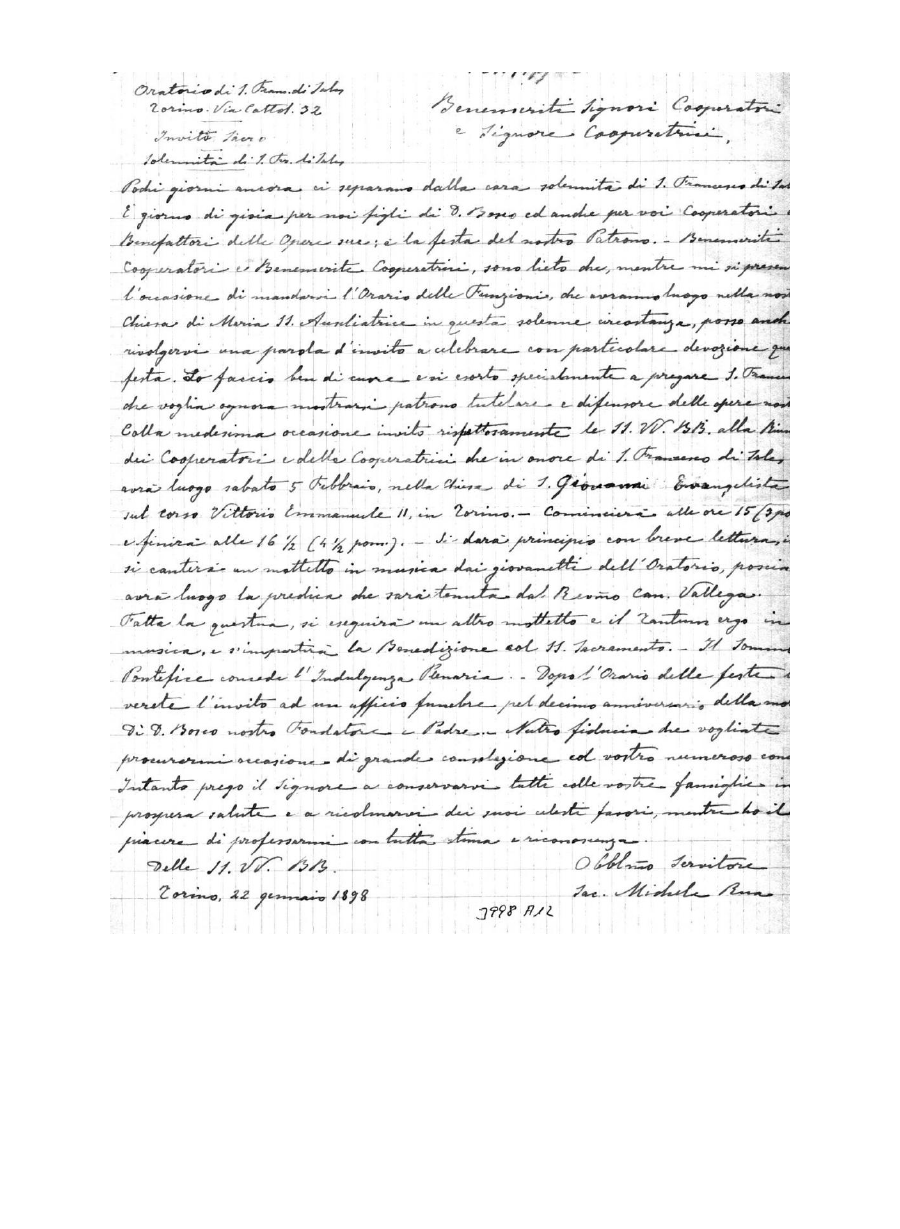 Oratorio di S. Fran. di Sales
Torino. Via Cottol. 32
Invito Sacro
Solennità di S. Fr. di Sales
Benemeriti Signori Cooperatori
e Signore Cooperatrici,
Pochi giorni ancora ci separano dalla cara solennità di S. Francesco di Sal
È giorno di gioia per noi figli di D. Bosco ed anche per voi Cooperatori e
Benefattori delle Opere sue; è la festa del nostro Patrono. - Benemeriti
Cooperatori e Benemerite Cooperatrici, sono lieto che, mentre mi si presen
l'occasione di mandarvi l'Orario delle Funzioni, che avranno luogo nella nost
Chiesa di Maria SS. Ausiliatrice in questa solenne circostanza, posso anch
rivolgervi una parola d'invito a celebrare con particolare devozione que
festa. Lo faccio ben di cuore e vi esorto specialmente a pregare S. Frances
che voglia ognora mostrarsi patrono tutelare e difensore delle opere nost
Colla medesima occasione invito rispettosamente le SS. VV. BB. alla Riun
dei Cooperatori e delle Cooperatrici che in onore di S. Francesco di Sales
avrà luogo sabato 5 Febbraio, nella Chiesa di S. Giovanni Evangelista
sul corso Vittorio Emmanuele II, in Torino. - Comincierà alle ore 15 (3 po
e finirà alle 16 ½ (4 ½ pom.). - Si darà principio con breve lettura, i
si canterà un mottetto in musica dai giovanetti dell'Oratorio, poscia
avrà luogo la predica che sarà tenuta dal Revmo Can. Vallega.
Fatta la questua, si eseguirà un altro mottetto e il Tantum ergo in
musica, e s'impartirà la Benedizione col SS. Sacramento. - Il Somm
Pontefice concede l'Indulgenza Plenaria. - Dopo l'Orario delle feste
verete l'invito ad un ufficio funebre pel decimo anniversario della mo
Di D. Bosco nostro Fondatore e Padre. - Nutro fiducia che vogliate
procurarmi occasione di grande consolazione col vostro numeroso conc
Intanto prego il Signore a conservarvi tutti colle vostre famiglie in
prospera salute e a ricolmarvi dei suoi celesti favori, mentre ho il
piacere di professarmi con tutta stima e riconoscenza
Delle SS. VV. BB.
Torino, 22 gennaio 1898
Obblmo Servitore
Sac. Michele Rua
3998 A12